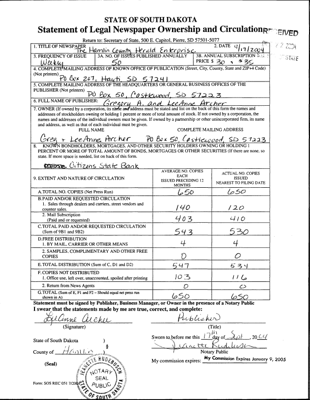 STATE OF SOUTH DAKOTA
Statement of Legal Newspaper Ownership and Circulation
Return to: Secretary of State, 500 E. Capitol, Pierre, SD 57501-5077
1. TITLE OF NEWSPAPER The Hamlin County Herald Enterprise 2. DATE
3. FREQUENCY OF ISSUE Weekly 3A. NO. OF ISSUES PUBLISHED ANNUALLY 50 3B. ANNUAL SUBSCRIPTION PRICE $
4. COMPLETE MAILING ADDRESS OF KNOWN OFFICE OF PUBLICATION (Street, City, County, State and ZIP+4 Code)
(Not printers) PO Box 207, Hayti SD 57241
5. COMPLETE MAILING ADDRESS OF THE HEADQUARTERS OR GENERAL BUSINESS OFFICES OF THE
PUBLISHER (Not printer) PO Box 50, Castlewood SD 57223
6. FULL NAME OF PUBLISHER: Gregory A. and LeeAnne Archer
7. OWNER (If owned by a corporation, its name and address must be stated and list on the back of this form the names and
addresses of stockholders owning or holding 1 percent or more of total amount of stock. If not owned by a corporation, the
names and addresses of the individual owners must be given. If owned by a partnership or other unincorporated firm, its name
and address, as well as that of each individual must be given.
FULL NAME COMPLETE MAILING ADDRESS
Greg + LeeAnne Archer PO Box 50, Castlewood SD 57223
8. KNOWN BONDHOLDERS, MORTGAGES, AND OTHER SECURITY HOLDERS OWNING OR HOLDING 1
PERCENT OR MORE OF TOTAL AMOUNT OF BONDS, MORTGAGES OR OTHER SECURITIES (If there are none, so
state. If more space is needed, list on back of this form.
Citizens State Bank
9. EXTENT AND NATURE OF CIRCULATION
AVERAGE NO. COPIES EACH ISSUED PRECEDING 12 MONTHS
ACTUAL NO. COPIES ISSUED NEAREST TO FILING DATE
A. TOTAL NO. COPIES (Net Press Run) 650 650
B. PAID AND/OR REQUESTED CIRCULATION
1. Sales through dealers and carriers, street vendors and
counter sales. 140 120
2. Mail Subscription
(Paid and or requested) 403 410
C. TOTAL PAID AND/OR REQUESTED CIRCULATION
(Sum of 9B1 and 9B2) 543 530
D. FREE DISTRIBUTION
1. BY MAIL, CARRIER OR OTHER MEANS 4 4
2. SAMPLES, COMPLIMENTARY AND OTHER FREE
COPIES 0 0
E. TOTAL DISTRIBUTION (Sum of C, D1 and D2) 547 534
F. COPIES NOT DISTRIBUTED
1. Office use, left over, unaccounted, spoiled after printing 103 116
2. Return from News Agents 0 0
G. TOTAL (Sum of E, F1 and F2 - Should equal net press run
shown in A) 650 650
Statement must be signed by Publisher, Business Manager, or Owner in the presence of a Notary Public
I swear that the statements made by me are true, correct, and complete:
LeeAnne Archer Publisher
(Signature) (Title)
State of South Dakota )
County of Hamlin )
Sworn to before me this
Notary Public
(Seal)
My commission expires: My Commission Expires January 9, 2008
NOTARY
SEAL
PUBLIC
SOUTH DAKOTA